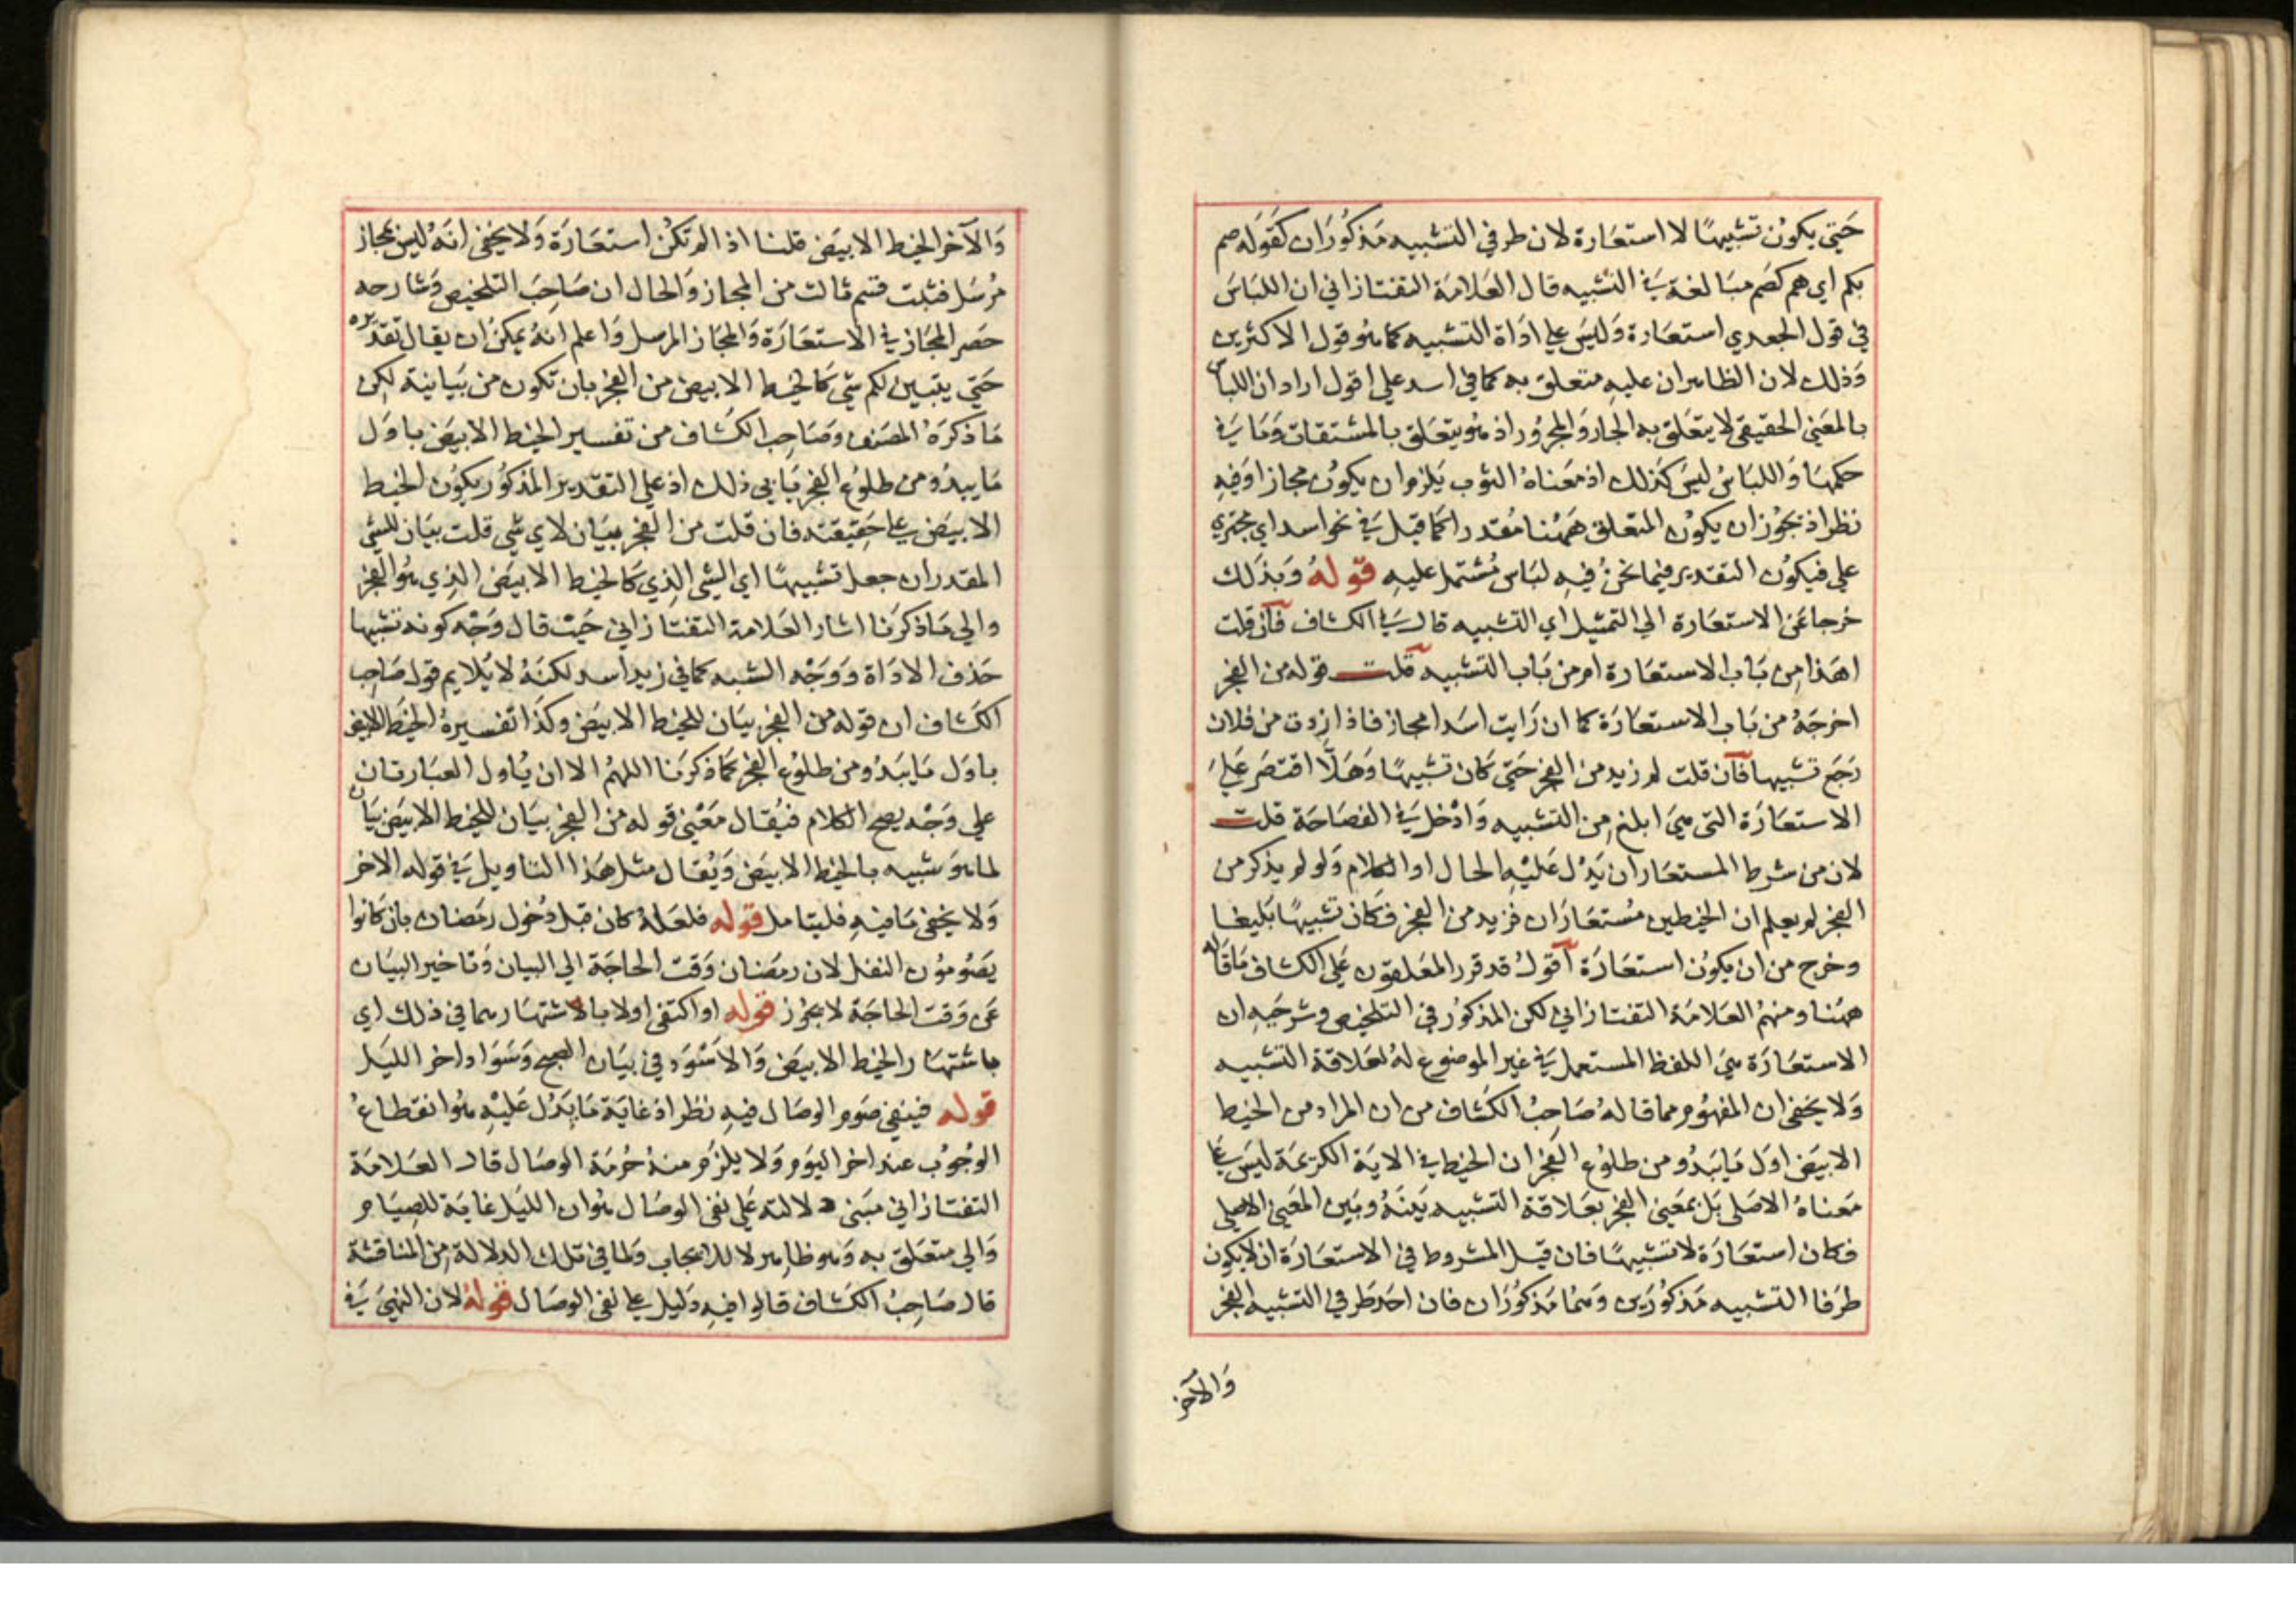 حتي يكون تشبيها لا استعارة لان طرفي التشبيه مذكوران كقوله صم
بكم اي هم كصم مبالغة في التشبيه قال العلامة التفتازاني ان اللباس
في قول الجعدي استعارة وليس علي اداة التشبيه كما هو قول الاكثرين
وذلك لان الظاهر ان عليه متعلق به كما في اسد علي اقول اراد ان اللباس
بالمعني الحقيقي لا يتعلق به الجار والمجرور اذ هو يتعلق بالمشتقات وما في
حكمها واللباس ليس كذلك اذ معناه الثوب يلزم ان يكون مجازا وفيه
نظر اذ يجوز ان يكون المتعلق ههنا مقدرا كما قيل في نحو اسد اي مجتري
علي فيكون التقدير فيما نحن فيه لباس مشتمل عليه قوله وبذلك
خرجا عن الاستعارة الي التمثيل اي التشبيه قال في الكشاف فان قلت
اهذا من باب الاستعارة ام من باب التشبيه قلت قوله من الفجر
اخرجه من باب الاستعارة كما ان رايت اسدا مجاز فاذا زدت من فلان
رجع تشبيها فان قلت لم زيد من الفجر حتي كان تشبيها وهلا اقتصر علي
الاستعارة التي هي ابلغ من التشبيه وادخل في الفصاحة قلت
لان من شرط المستعار ان يدل عليه الحال او الكلام ولو لم يذكر من
الفجر لم يعلم ان الخيطين مستعاران فزيد من الفجر فكان تشبيها بليغا
وخرج من ان يكون استعارة اقول قد قرر المعلقون علي الكشاف ما قاله
ههنا ومنهم العلامة التفتازاني لكن المذكور في التلخيص وشرحيه ان
الاستعارة هي اللفظ المستعمل في غير الموضوع له لعلاقة التشبيه
ولا يخفي ان المفهوم مما قاله صاحب الكشاف من ان المراد من الخيط
الابيض اول ما يبدو من طلوع الفجر ان الخيط في الاية الكريمة ليس علي
معناه الاصلي بل بمعني الفجر بعلاقة التشبيه بينه وبين المعني الاصلي
فكان استعارة لا تشبيها فان قيل المشروط في الاستعارة ان لا يكون
طرفا التشبيه مذكورين وهما مذكوران فان احد طرفي التشبيه الفجر
والآخر
والآخر الخيط الابيض قلنا اذا لم تكن استعارة ولا يخفي انه ليس بمجاز
مرسل فثبت قسم ثالث من المجاز والحال ان صاحب التلخيص وشارحه
حصر المجاز في الاستعارة والمجاز المرسل واعلم انه يمكن ان يقال تقديره
حتي يتبين لكم شي كالخيط الابيض من الفجر بان تكون من بيانية لكن
ما ذكره المصنف وصاحب الكشاف من تفسير الخيط الابيض باول
ما يبدو من طلوع الفجر يابي ذلك اذ علي التقدير المذكور يكون الخيط
الابيض علي حقيقته فان قلت من الفجر بيان لاي شي قلت بيان للشي
المقدر ان جعل تشبيها اي الشي الذي كالخيط الابيض الذي هو الفجر
والي ما ذكرنا اشار العلامة التفتازاني حيث قال وجه كونه تشبيها
حذف الاداة ووجه الشبه كما في زيد اسد لكنه لا يلايم قول صاحب
الكشاف ان قوله من الفجر بيان للخيط الابيض وكذا تفسيره الخيط الابيض
باول ما يبدو من طلوع الفجر كما ذكرنا اللهم الا ان ياول العبارتان
علي وجه يصح الكلام فيقال معني قوله من الفجر بيان للخيط الابيض بيان
لما هو شبيه بالخيط الابيض ويقال مثل هذا التاويل في قوله الاخر
ولا يخفي ما فيه فليتامل قوله فلعله كان قبل دخول رمضان بان كانوا
يصومون النفل لان رمضان وقت الحاجة الي البيان وتاخير البيان
عن وقت الحاجة لا يجوز قوله او اكتفي اولا بالاشتهارهما في ذلك اي
باشتهار الخيط الابيض والاسود في بيان الصبح وسواد اخر الليل
قوله فينفي صوم الوصال فيه نظر اذ غاية ما يدل عليه هو انقطاع
الوجوب عند اخر اليوم ولا يلزم منه حرمة الوصال قال العلامة
التفتازاني مبني دلالته علي نفي الوصال هو ان الليل غاية للصيام
والي متعلق به وهو ظاهر لا للايجاب ولما في تلك الدلالة من المناقشة
قال صاحب الكشاف قالوا فيه دليل علي نفي الوصال قوله لان النهي في